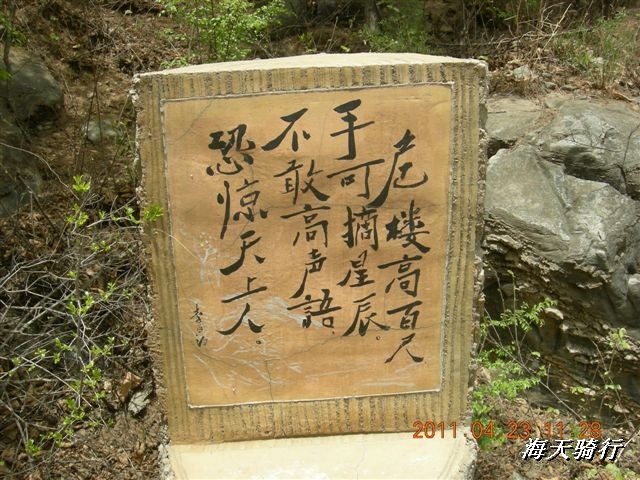 危楼高百尺
手可摘星辰。
不敢高声语，
恐惊天上人。
2011.04.23 11:28
海天骑行